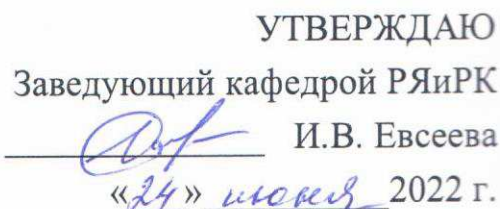 УТВЕРЖДАЮ
Заведующий кафедрой РЯиРК
И.В. Евсеева
«24» июня 2022 г.